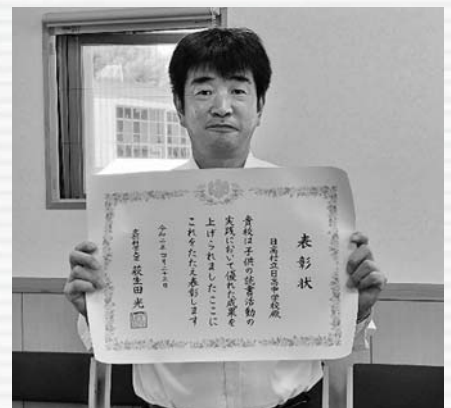 表彰状
日高村立日高中学校殿
貴校は子供の読書活動の
実践において優れた成果を
上げられましたここに
これをたたえ表彰します
四月二十三日
文部科学大臣 萩生田光一